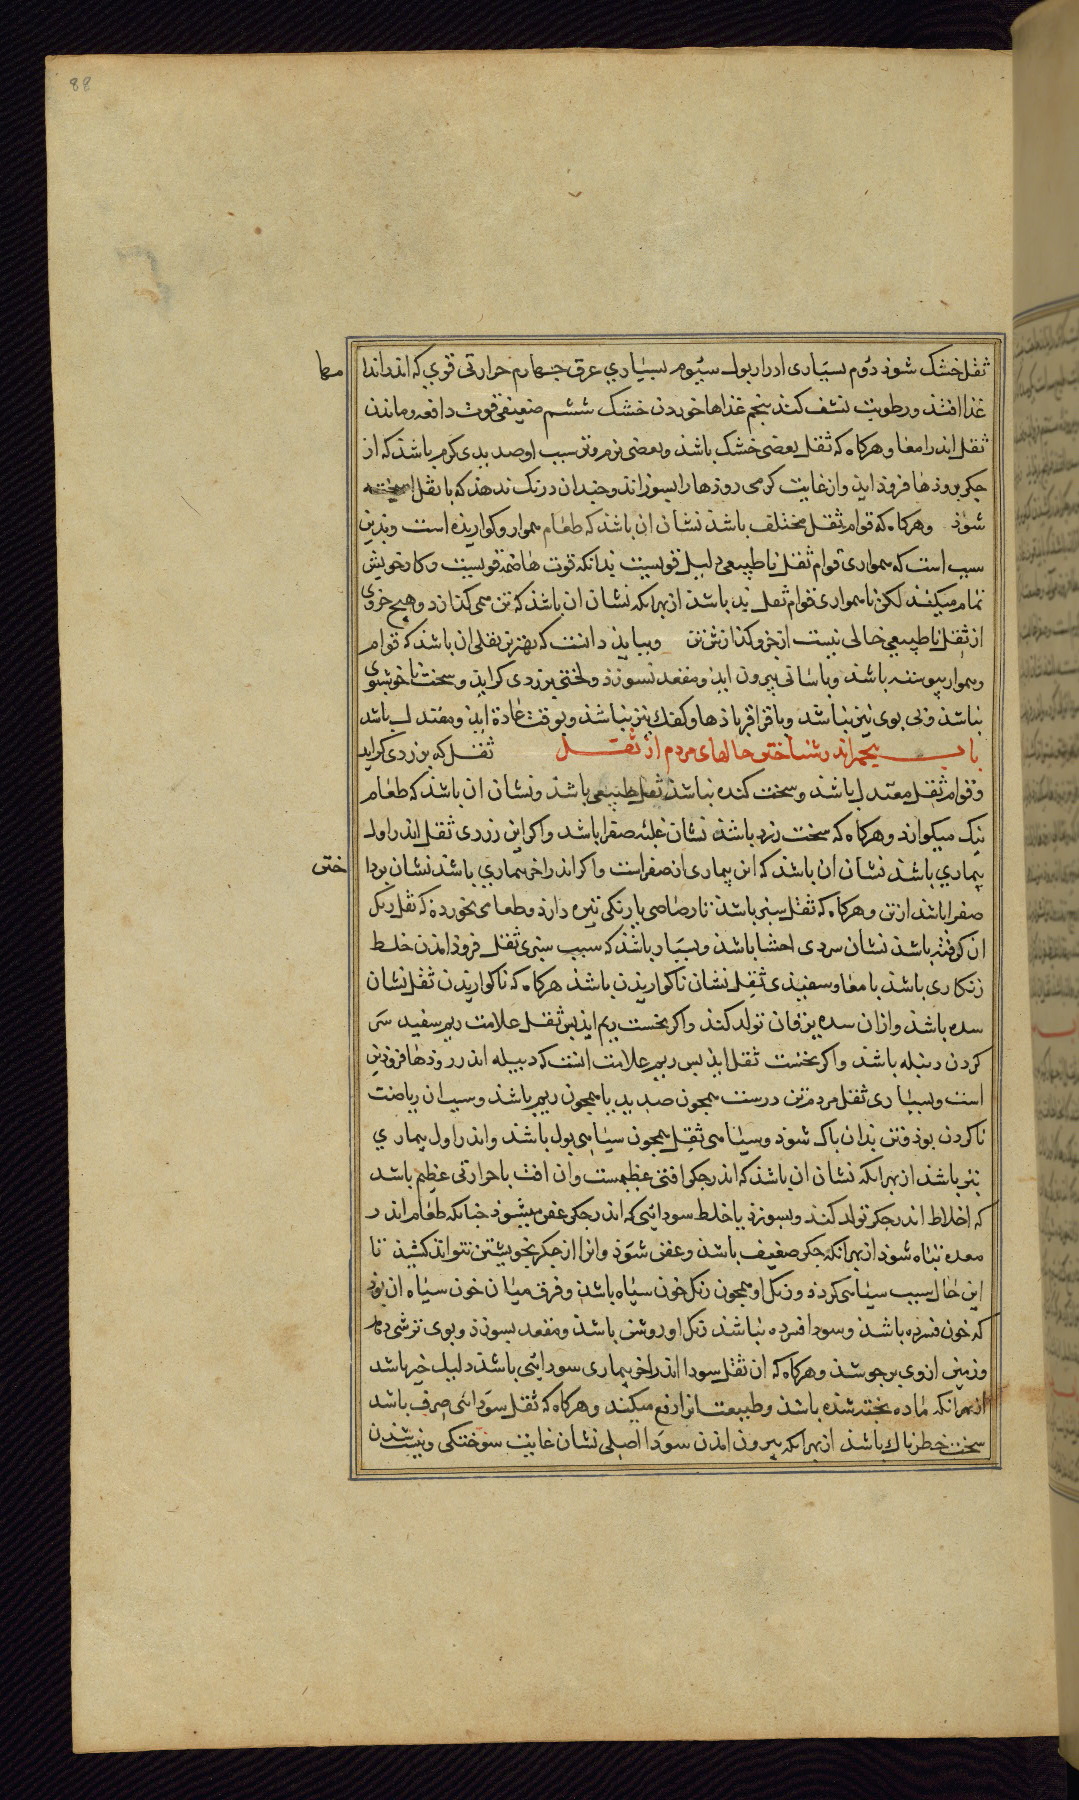 88
ثفل خشک شوذ دوم بسیاری ادرار بول سیوم بسیاری عرق جهارم حرارتی قوی که اندر اندامها
غذا افتذ ورطوبت نشف کند پنجم غذاها خوردن خشک ششم ضعیفی قوت دافعه وماندن
ثفل اندر امعا وهرکاه که ثفل بعضی خشک باشد وبعضی نرم وتر سبب او صدیدی کرم باشذ که از
جکر بروذها فروذ ایذ واز غایت کرمی روذها را بسوزاند وجندان درنک ندهذ که با ثفل امیخته
شوذ وهرکاه که قوام ثفل مختلف باشذ نشان ان باشذ که طعام هموار وکواریذه است وبذین
سبب است که همواری قوام ثفل ناطبیعی دلیل قویست بدانکه قوت هاضمه قویست وکار خویش
تمام میکند لکن ناهمواری قوام ثفل بد باشد از بهرانکه نشان ان باشذ که تن می کذازد وهیچ خروی
از ثفل ناطبیعی خالی نیست از خرو کذازش تن وبباید دانست که بهترین ثفلی ان باشذ که قوام
وهموار پیوسته باشد وباسانی بیرون ایذ ومقعد نسوزذ ولختی بزردی کراید وسخت ناخوشبوی
نباشذ وبی بوی نیز نباشد وبا قراقر باذها وکفک نیز نباشذ وبوقت عادة ایذ ومعتدل باشد
باب پنجم اندر شناختن حالهای مردم از ثفل ثفل که بزردی کراید
وقوام ثفل معتدل باشد وسخت کنده نباشذ ثفل طبیعی باشذ ونشان ان باشذ که طعام
نیک میکوارد وهرکاه که سخت زرد باشذ نشان غلبه صفرا باشد واکر این زردی ثفل اندر اول
بیماری باشذ نشان ان باشذ که این بیماری از صفراست واکر اندر اخر بیماری باشذ نشان برداختن
صفرا باشذ از تن وهرکاه که ثفل سبز باشذ تا رصاصی یا رنکی تیره دارذ وطعامی نخورده که ثفل رنک
ان کرفته باشذ نشان سردی احشا باشذ وبسیار باشذ که سبب سبزی ثفل فروذ امذن خلط
زنکاری باشذ بامعا وسفیذی ثفل نشان ناکواریذن باشذ هرکاه که ناکواریذن ثفل نشان
سده باشذ وازان سده یرقان تولد کنذ واکر نخست ریم ایذ پس ثفل علامت ریم سفید سر
کردن دبیله باشذ واکر نخست ثفل ایذ پس ریم علامت انست که دبیله اندر روذها فروذین
است وبسیاری ثفل مردم تن درست همجون صدید یا همجون ریم باشذ وسبب ان ریاضت
ناکردن بوذ وتن بذان باک شوذ وسیاهی ثفل همجون سیاهی بول باشذ واندر اول بیماری
بتر باشذ از بهرانکه نشان ان باشذ که اندر جکر افتی عظیمست وان افت با حرارتی عظیم باشد
که اخلاط اندر جکر تولد کند وبسوزذ یا خلط سودائی که اندر جکر عفن میشوذ جنانکه طعام اندر
معده تباه شوذ از بهرانکه جکر ضعیف باشذ وعفن شوذ وانرا از جکر بخویشتن نتواند کشید تا
این حال سبب سیاهی کردد ورنک او همجون رنک خون سیاه باشذ وفرق میان خون سیاه ان بوذ
که خون فسرده باشذ وسودا فسرده نباشذ رنک او روشن باشذ ومقعد بسوزذ وبوی ترشی دهد
وزمین ازوی برجوشذ وهرکاه که ان ثفل سودا اندر اخر بیماری سودائی باشذ دلیل خیر باشد
از بهرانکه ماده پخته شذه باشذ وطبیعت انرا دفع میکند وهرکاه که ثفل سودائی صرف باشد
سخت خطرناک باشذ از بهرانکه بیرون امذن سودا اصلی نشان غایت سوختکی ونیست شدن